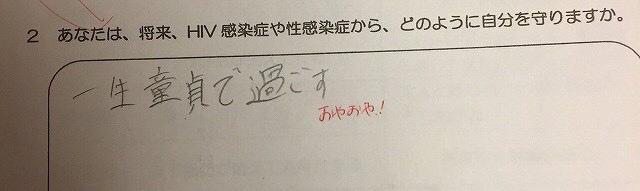 2 あなたは、将来、HIV 感染症や性感染症から、どのように自分を守りますか。
一生童貞で過ごす
おやおや!